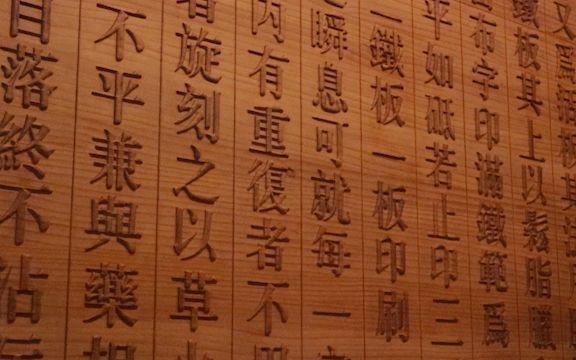 又爲活板其
鐵板其上以鬆脂臘
布字印滿鐵範爲
平如砥若上印三
二鐵板一板印刷
瞬息可就每一
内有重復者不
者旋刻之以草
不平兼與藥相
自落終不沾